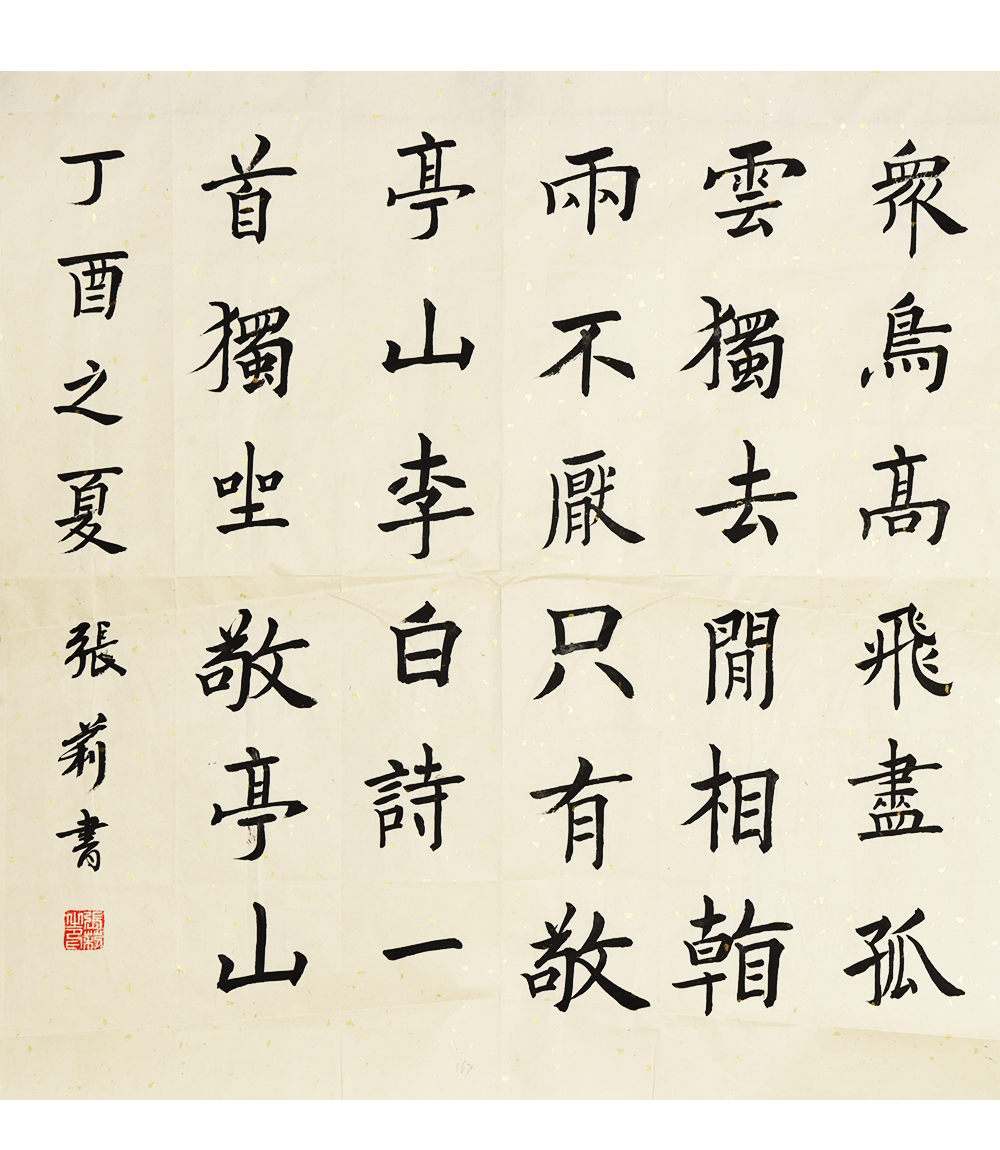 衆鳥髙飛盡孤
雲獨去閒相看
兩不厭只有敬
亭山李白詩一
首獨坐敬亭山
丁酉之夏 張莉書
張莉之印